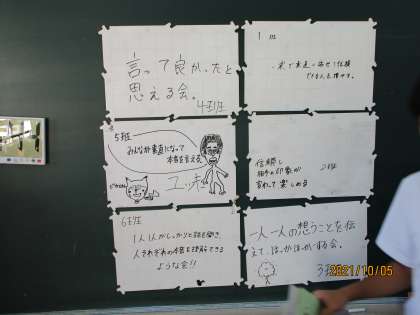 言って良かったと
思える会。
4班
1班
5班
みんなが素直になって
本音を言える
2班
言われて楽しめる
6班
1人1人がしっかりと話を聞き、
人それぞれの本音を理解できる
ような会!!
一人一人の想うことを伝
えて、ぽっかぽっかする会。
3班
2021/10/05